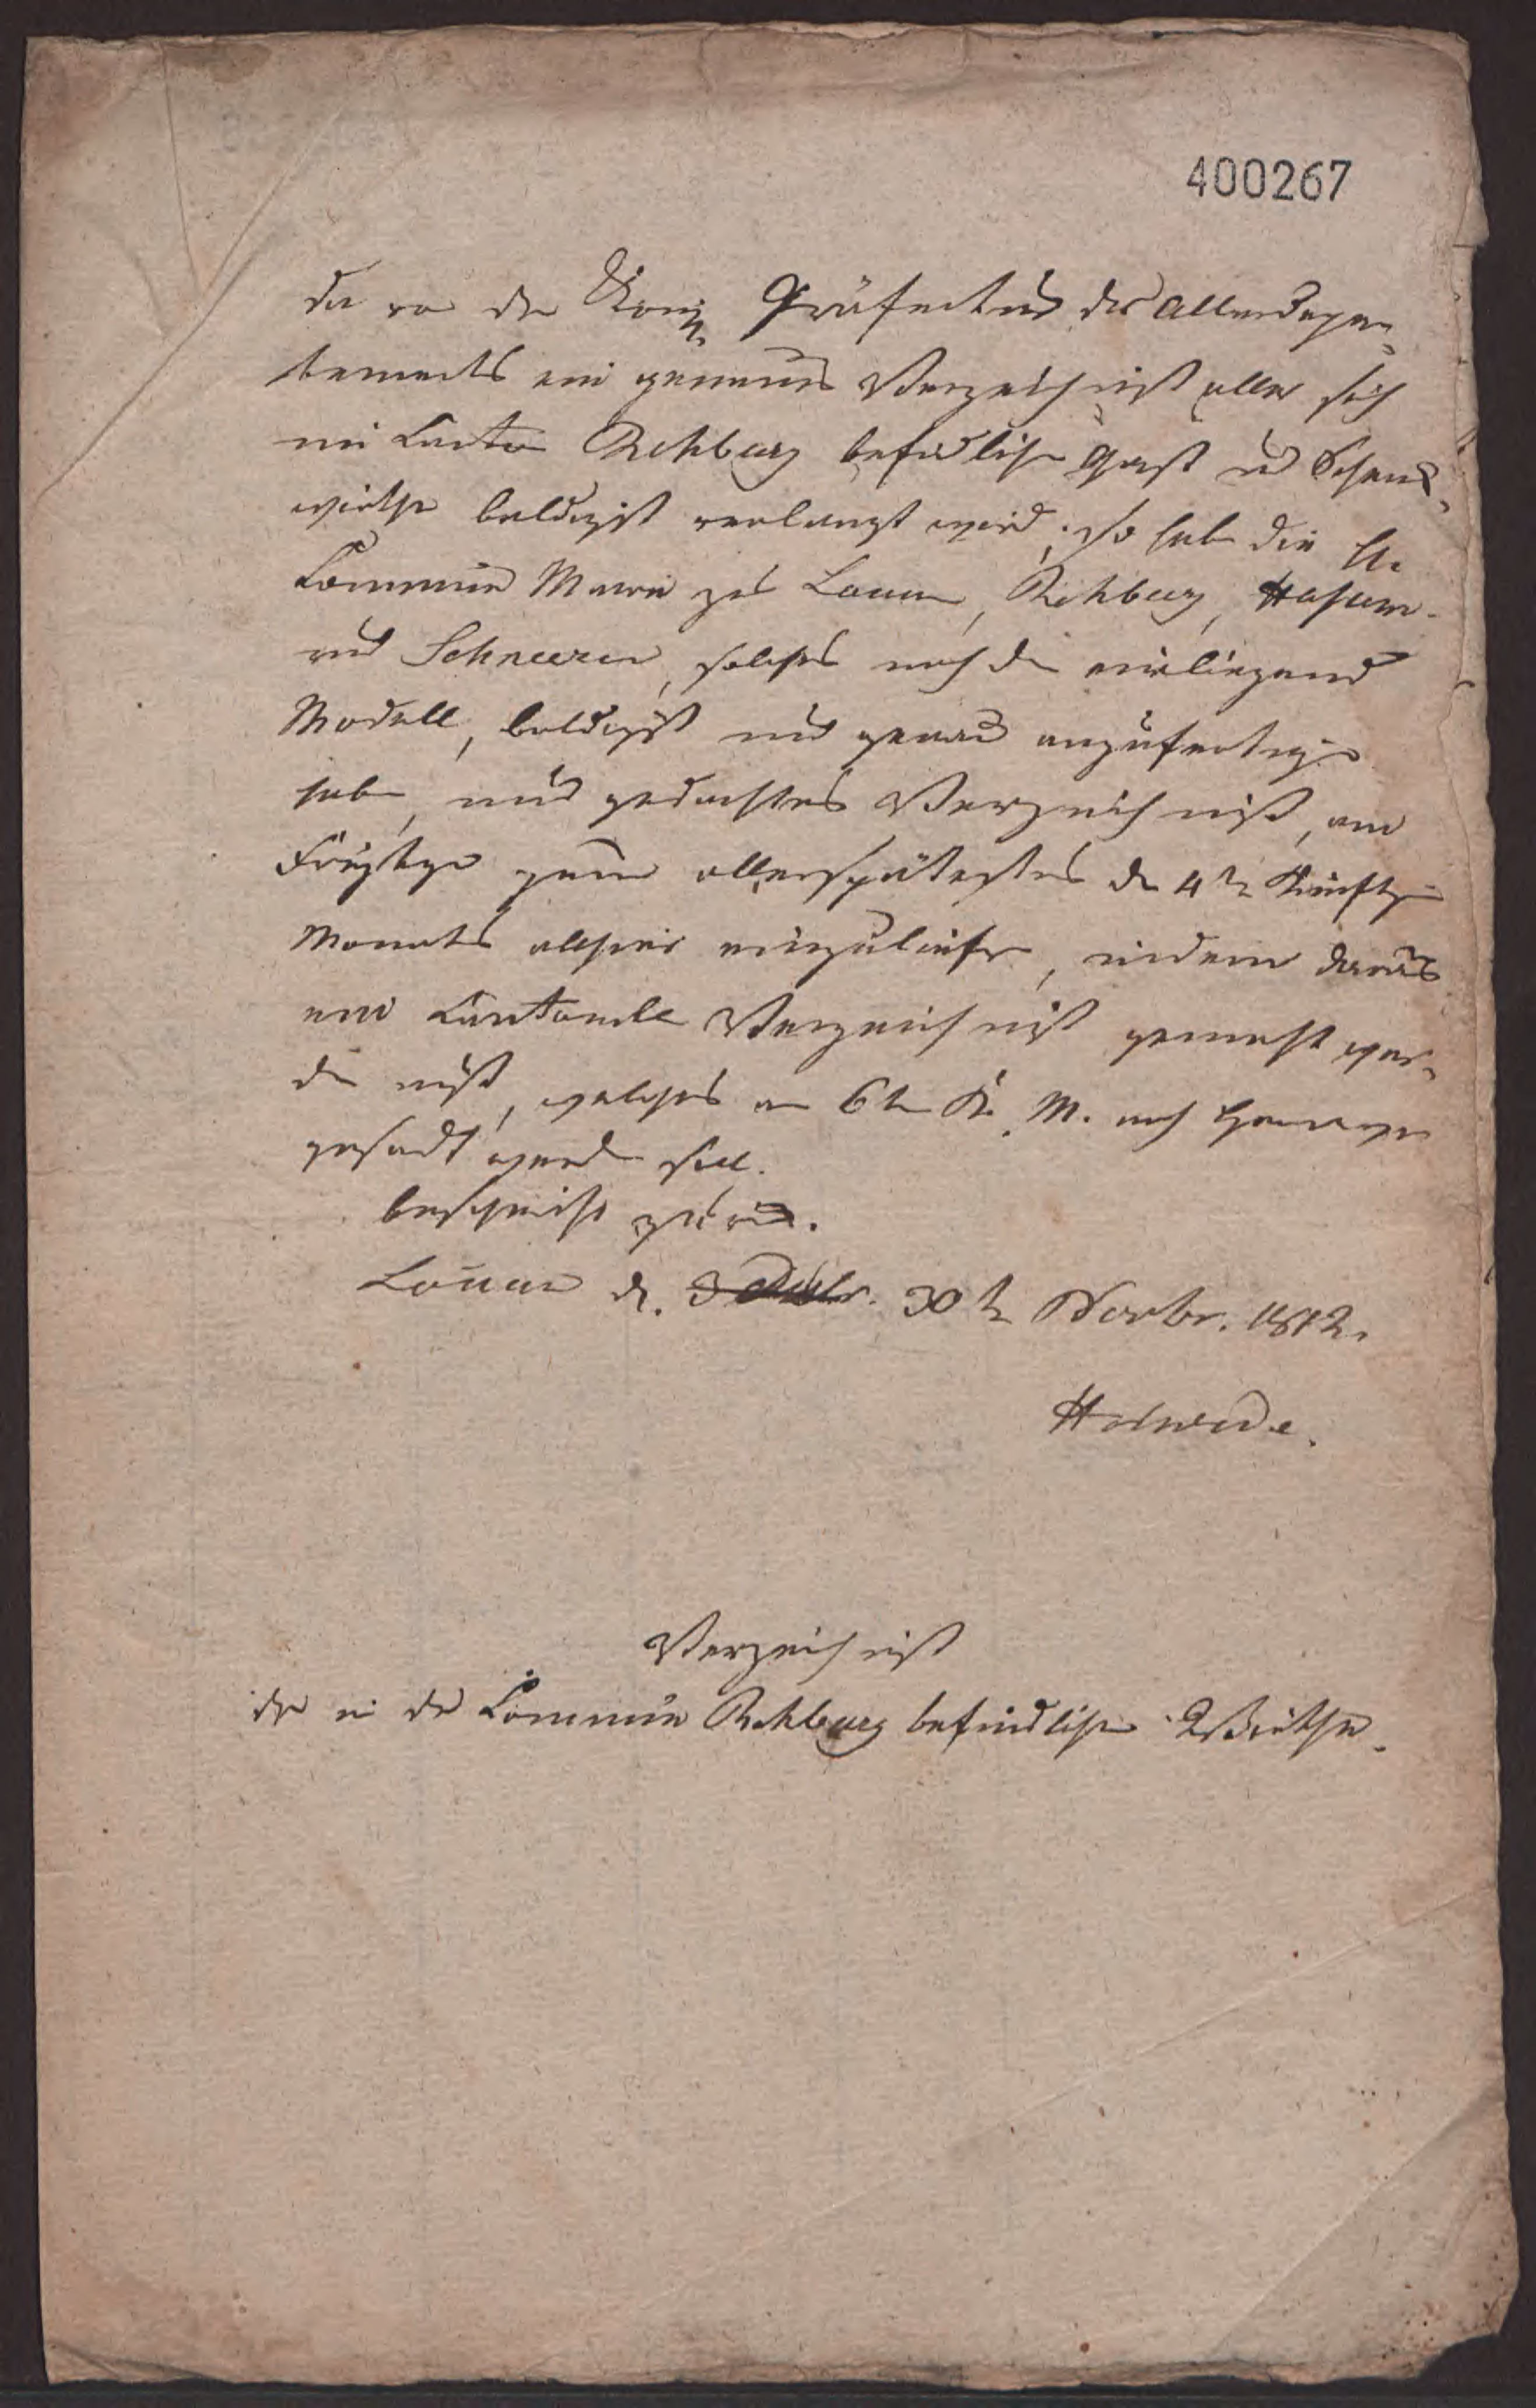 400267
da von der König. Präfectur des Allerdepar-
tements ein genaues Verzeichniß aller sich
im Canton Rehburg befindlichen Gast und Schenk-
wirthe baldigst verlangt wird, so haben die H.
Commun Maire zu Loccum, Rehburg,
und Schneeren, solches nach dem einliegenden
Modell, baldigst und genau anzufertigen
haben, und gedachtes Verzeichniß, am
Freytage zum allerspätesten den 4ten Künftigen
Monats allhier einzuliefern, indem daraus
ein Cantonale Verzeichniß gemacht wer-
den muß, welches am 6ten K. M. nach Hannover
gesandt werden soll.
beschleunigt zurück.
Loccum d. 30ten Novbr. 1812.
Verzeichniß
der in der Commün Rehburg befindlichen Wirthe.